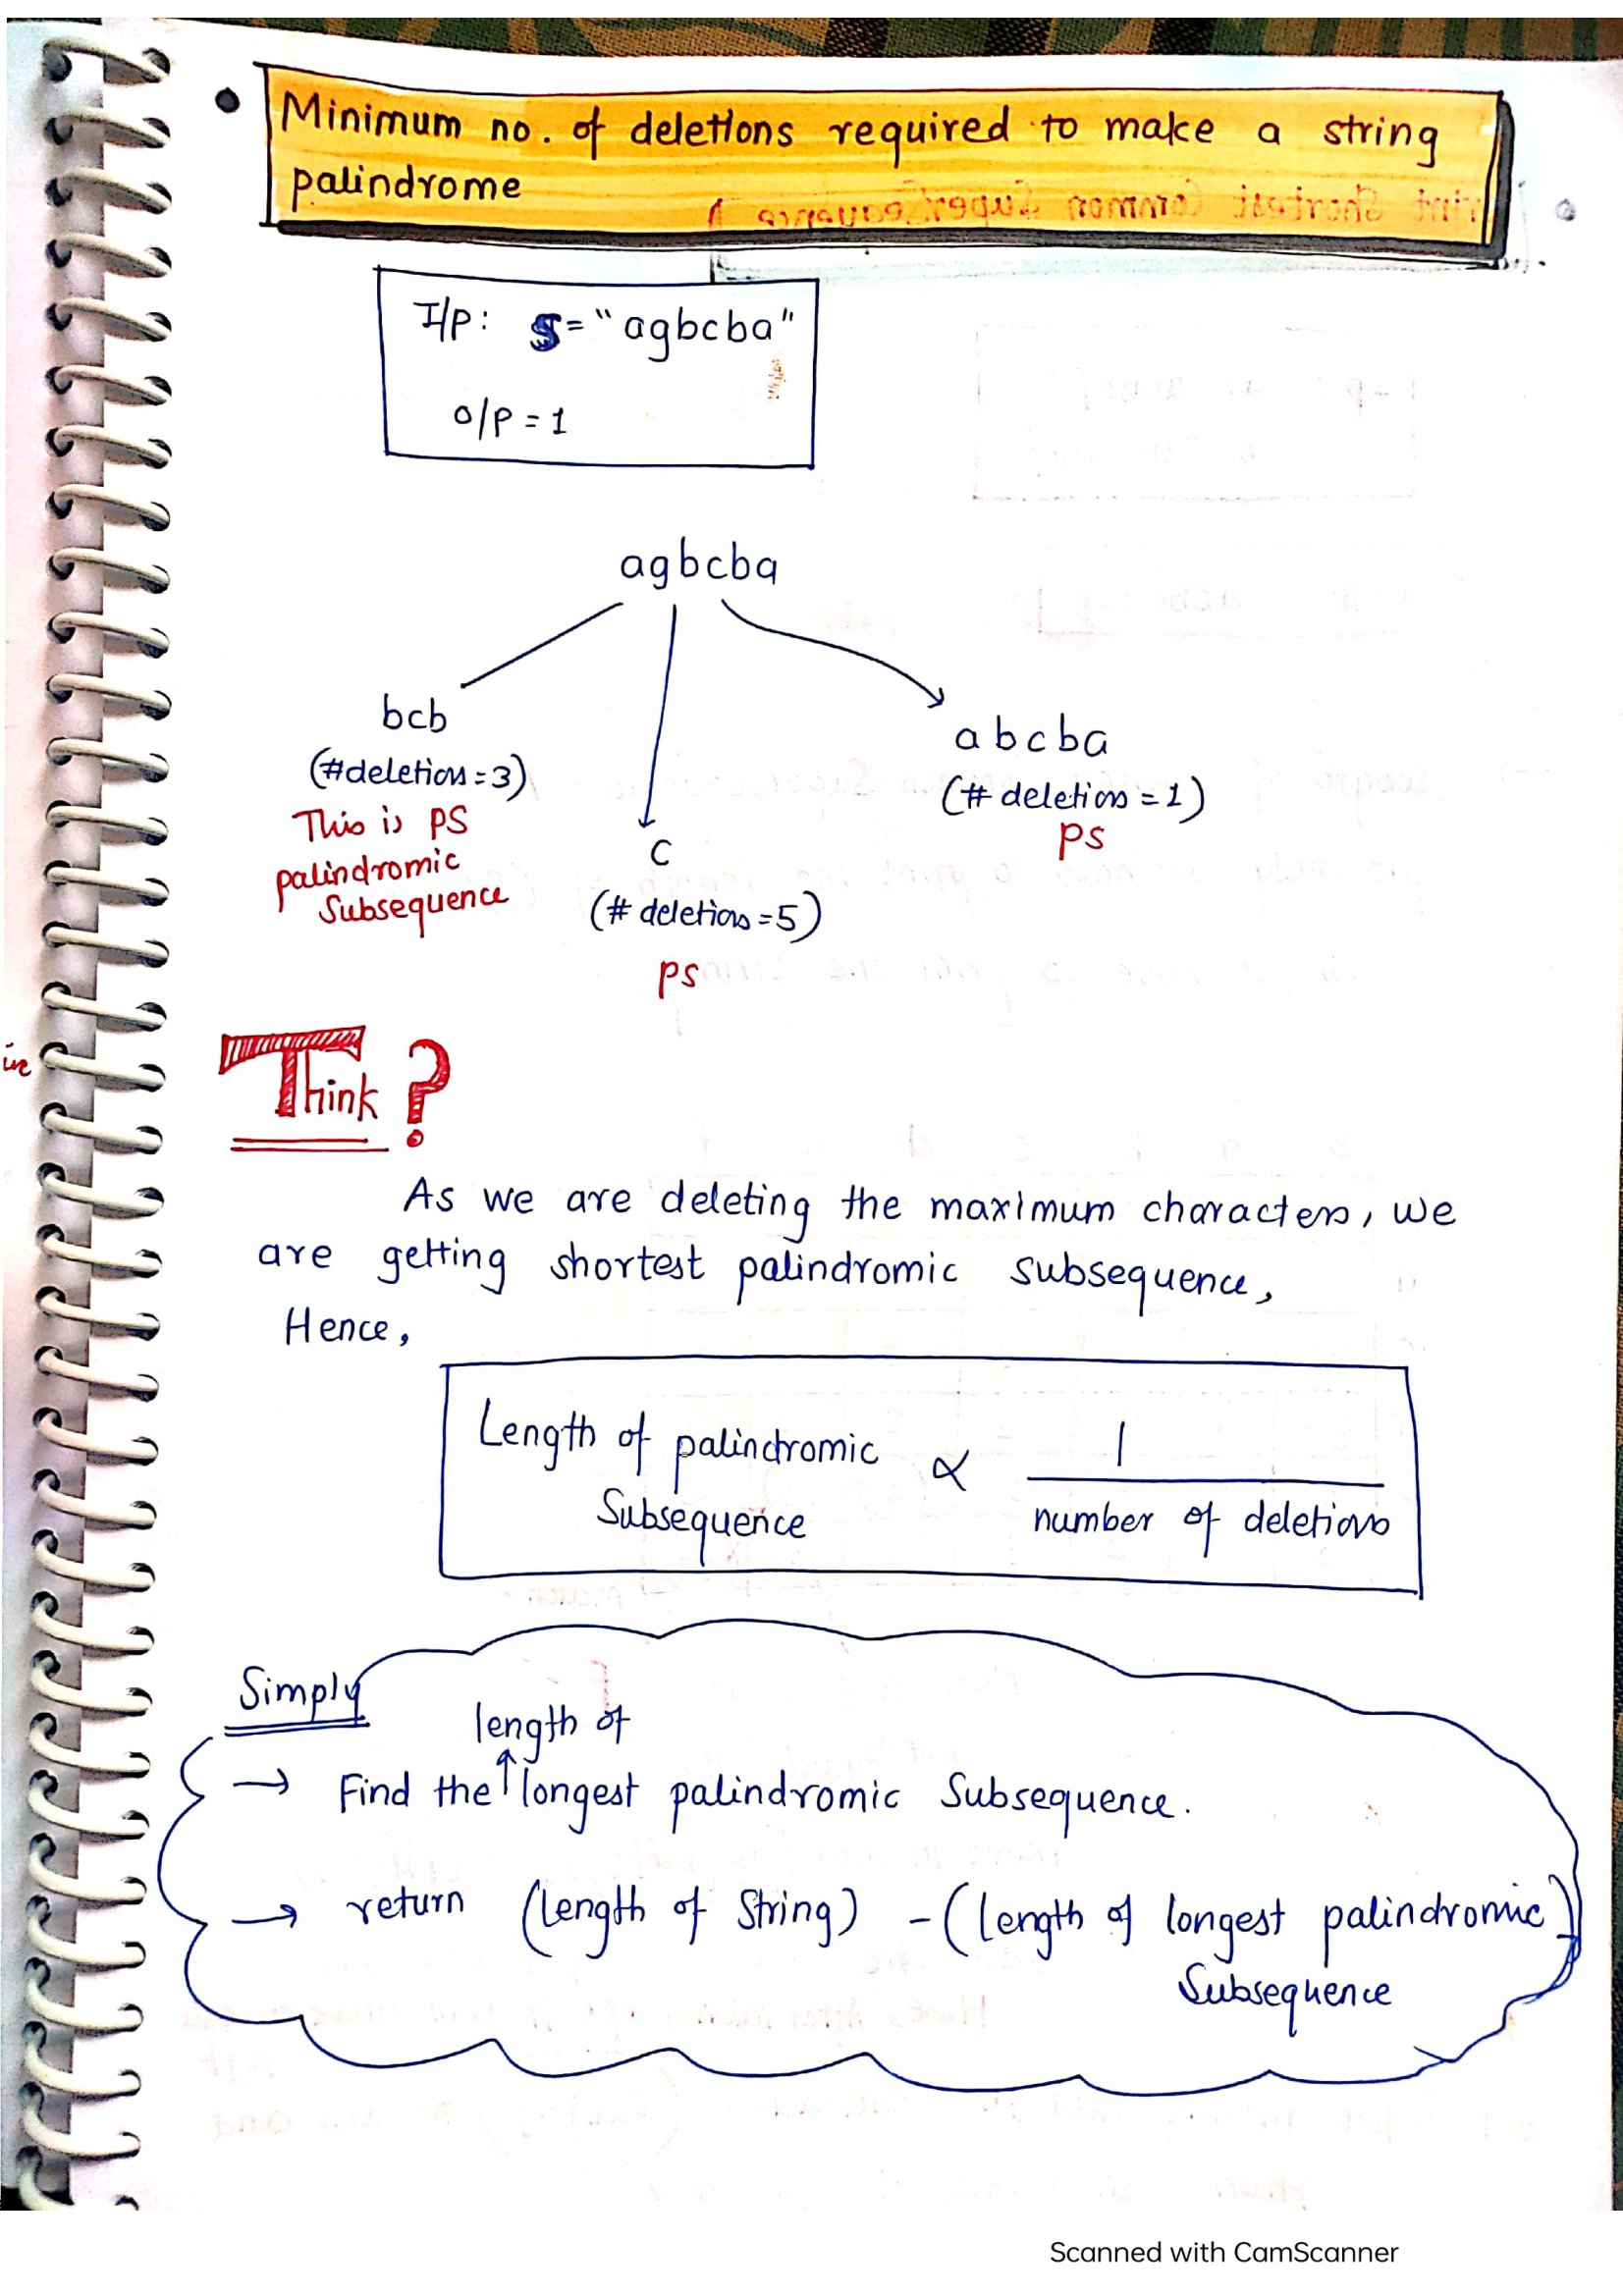 Minimum no. of deletions required to make a string
palindrome
I/P: S = "agbcba"
O/P = 1
agbcba
bcb
(#deletions = 3)
This is PS
palindromic
Subsequence
c
(# deletions = 5)
PS
abcba
(# deletions = 1)
PS
Think ?
As we are deleting the maximum characters, we
are getting shortest palindromic subsequence,
Hence,
Length of palindromic Subsequence ∝ 1 / number of deletions
Simply
length of
→ Find the ↑ longest palindromic Subsequence.
→ return (Length of String) - (length of longest palindromic
Subsequence)
Scanned with CamScanner